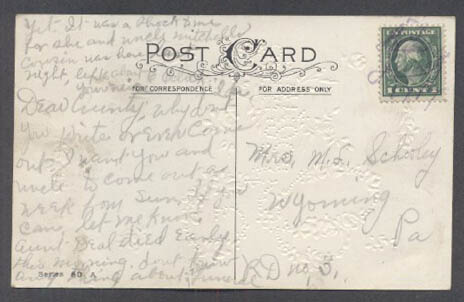 yet. It was a shock to me
for she and uncle
Cousin was here
night left about
POST CARD
FOR CORRESPONDENCE
FOR ADDRESS ONLY
U.S. POSTAGE
1 CENT 1
Dear Aunty, why don't
you write or even come
out I want you and
uncle to come out a
week from Sun, if you
can, let me know
Aunt Deal died early
this morning, dont know
any thing about funeral
Mrs. M.S. Schooley
Wyoming
Pa
R D no, 3,
Series 80 A